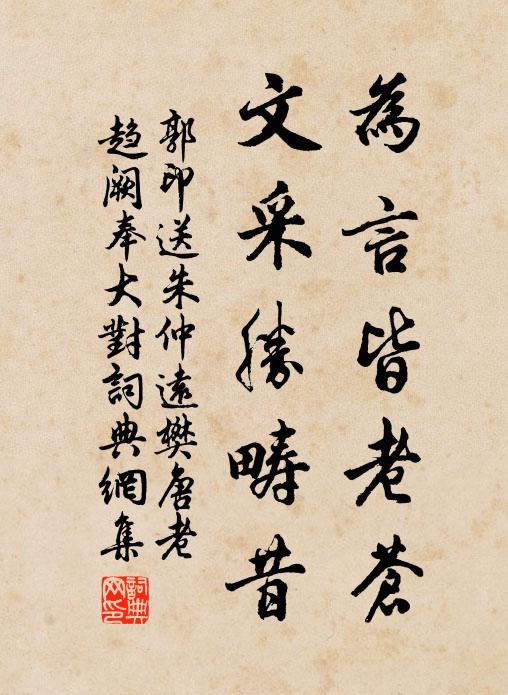 為言皆老蒼
文采勝疇昔
郭印送朱仲遠樊唐老
趨闕奉大對詞典網集
詞典网印